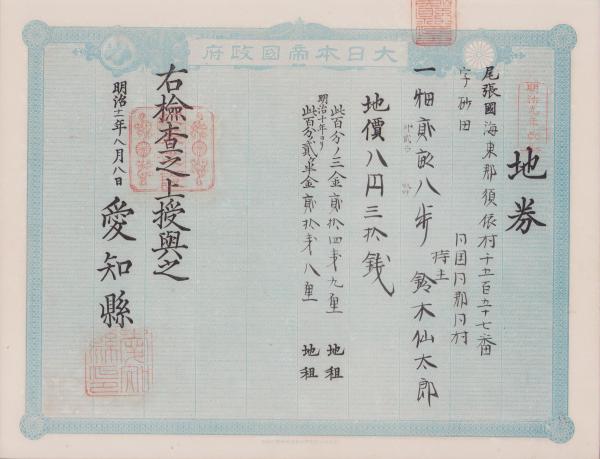 大日本帝國政府
地券
明治九年改
尾張國海東郡須依村十五百九十七番
字砂田
同国同郡同村
持主 鈴木仙太郎
一畑貳畝八歩
地價八円三拾銭
此百分ノ三金貳拾四銭九厘 地租
明治十年ヨリ
此百分ノ貳ケ半金貳拾銭八厘 地租
右檢查之上授與之
明治十一年八月八日
愛知縣